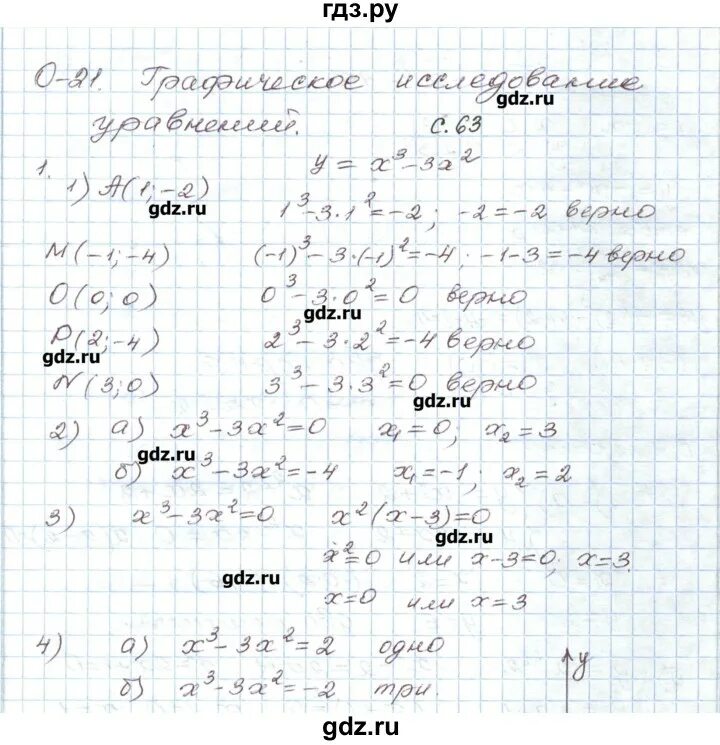 гдз.ру
О-21. Графическое исследование
gdz.ru
уравнений. с. 63
1. y = x³-3x²
1) A(1;-2)
gdz.ru
1³-3·1²=-2; -2=-2 верно
M(-1;-4) (-1)³-3·(-1)²=-4; -1-3=-4 верно
O(0; 0) 0³-3·0²=0 верно
gdz.ru
P(2;-4) 2³-3·2²=-4 верно
gdz.ru
N(3;0) 3³-3·3²=0 верно
gdz.ru
2) а) x³-3x²=0 x₁=0; x₂=3
gdz.ru
б) x³-3x²=-4 x₁=-1; x₂=2
3) x³-3x²=0 x²(x-3)=0
gdz.ru
x²=0 или x-3=0; x=3.
gdz.ru
x=0 или x=3
4) а) x³-3x²=2 одно
y
б) x³-3x²=-2 три.
gdz.ru